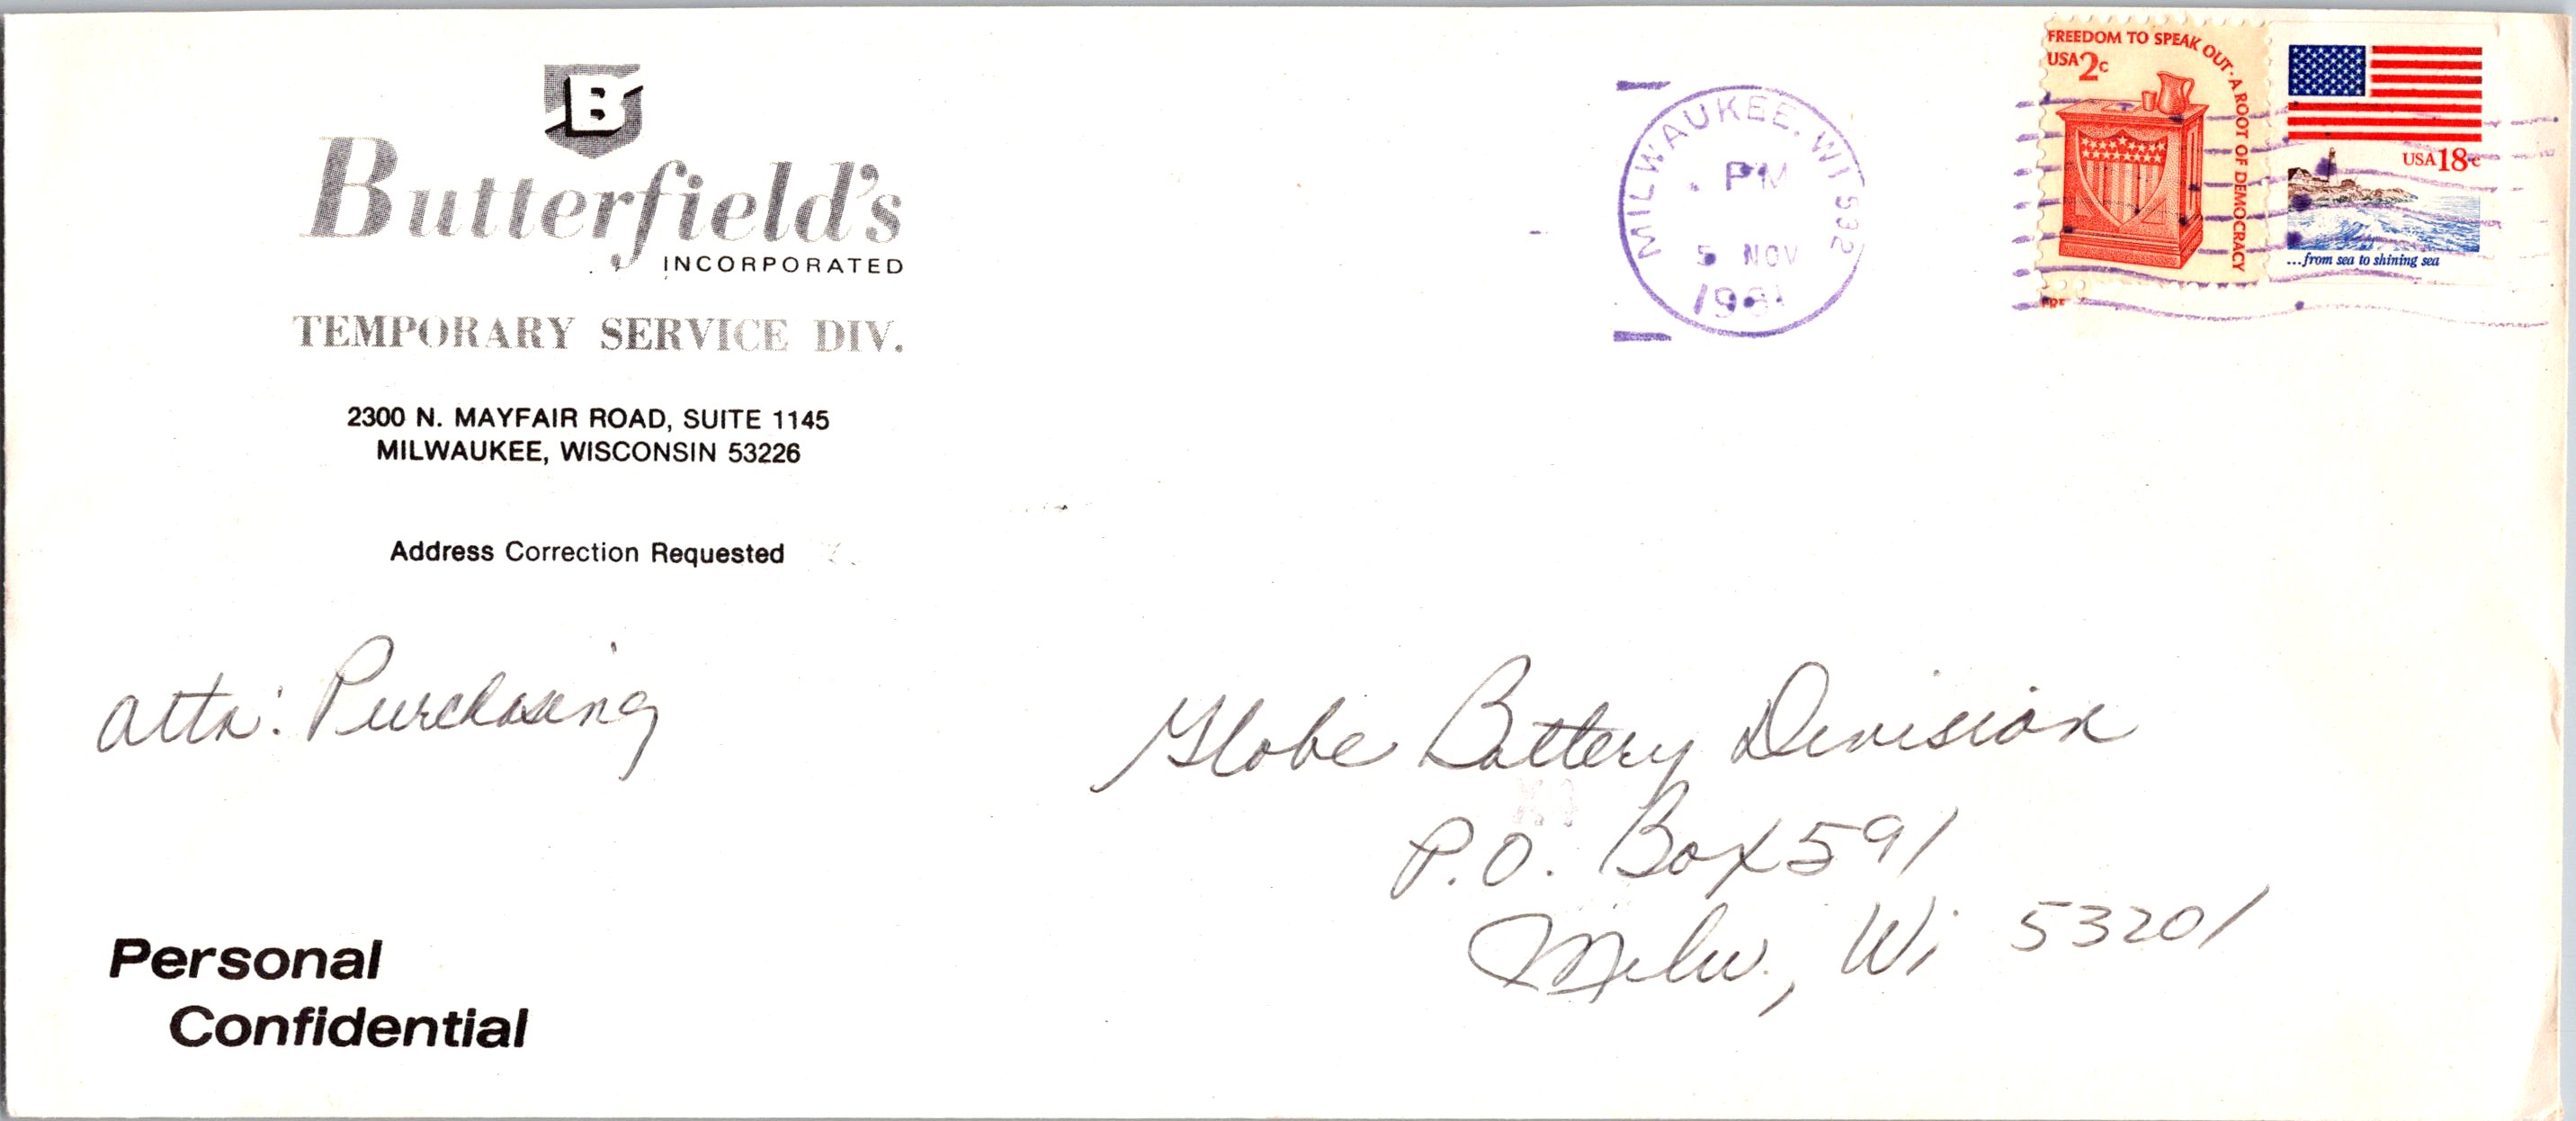 B
Butterfield's
INCORPORATED
TEMPORARY SERVICE DIV.
2300 N. MAYFAIR ROAD, SUITE 1145
MILWAUKEE, WISCONSIN 53226
Address Correction Requested
MILWAUKEE, WI 532
PM
5 NOV
1981
FREEDOM TO SPEAK OUT · A ROOT OF DEMOCRACY
USA 2c
USA 18c
...from sea to shining sea
attn: Purchasing
Globe Battery Division
P.O. Box 591
Milw., Wi 53201
Personal
Confidential